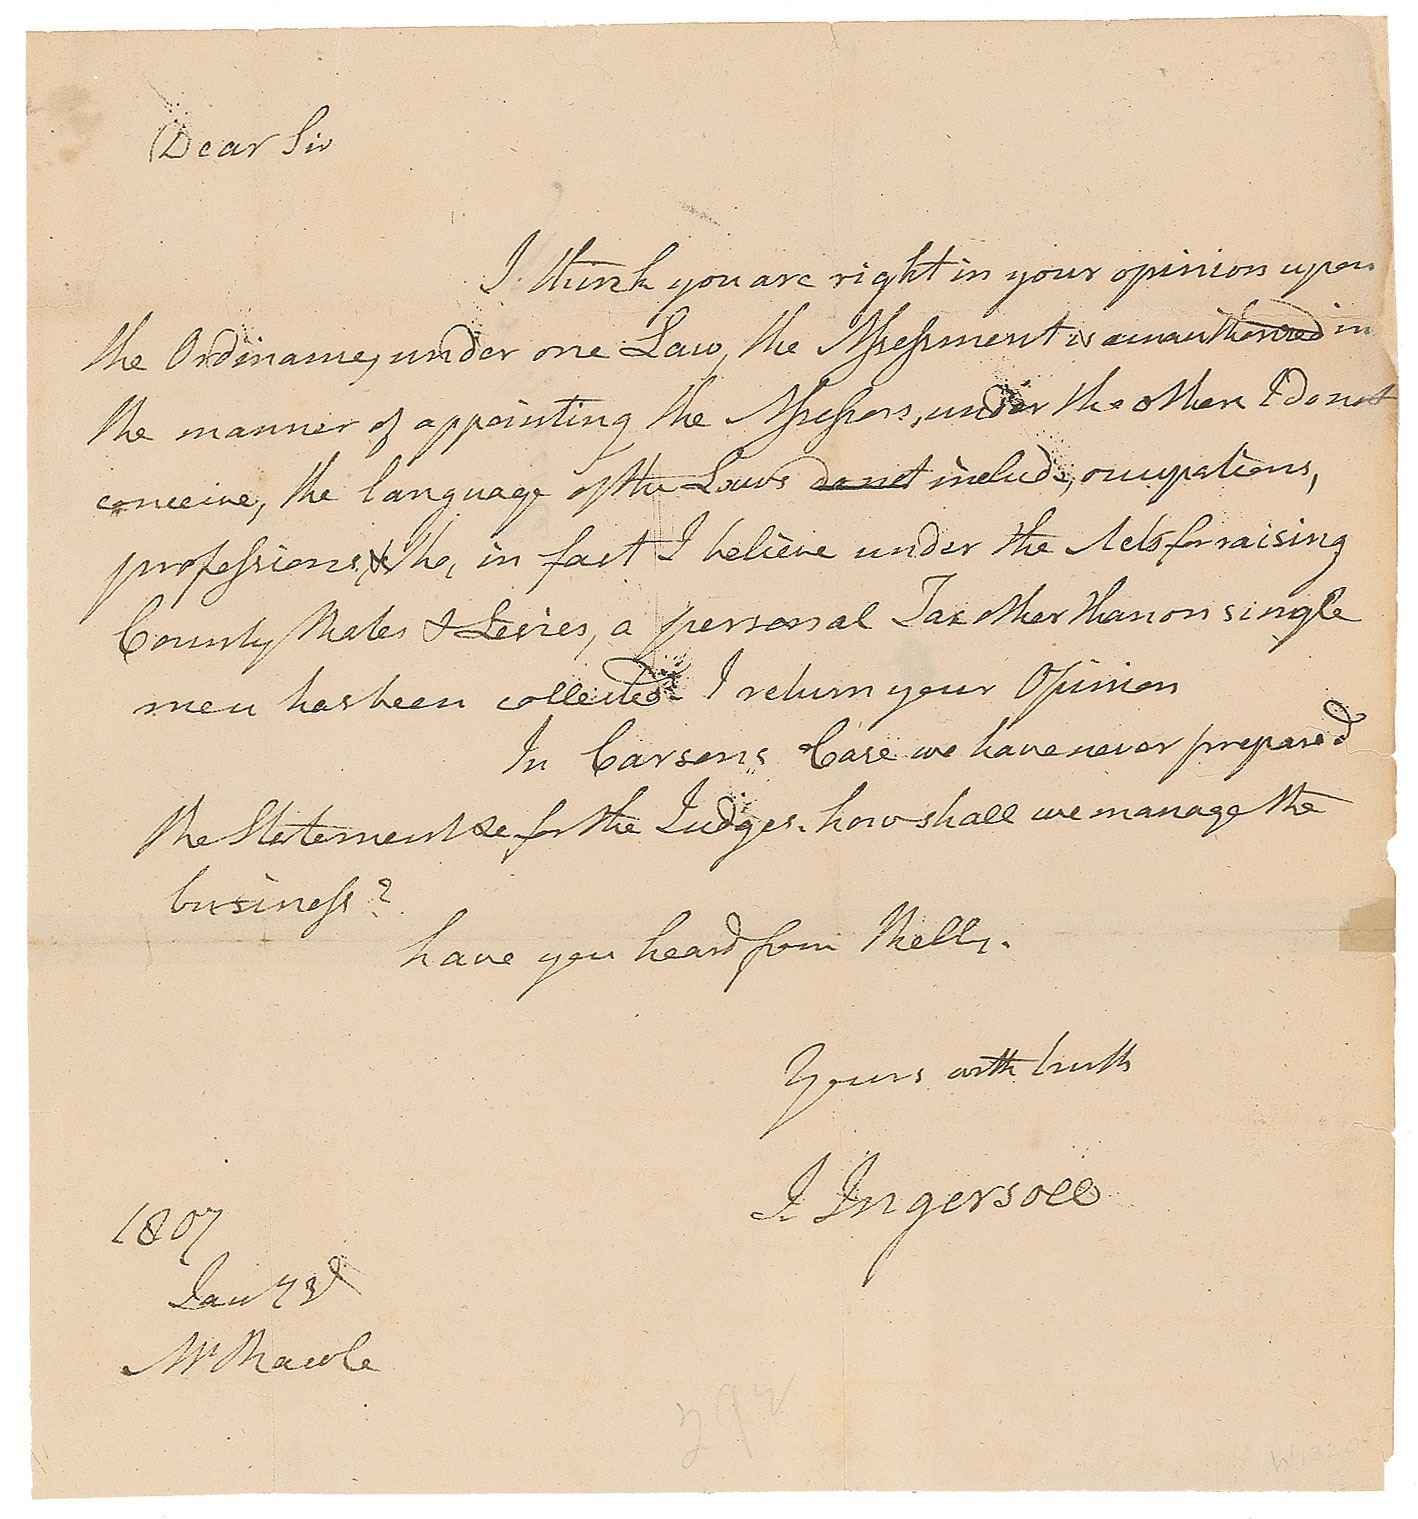 Dear Sir
I think you are right in your opinion upon
the Ordinance, under one Law, the Assessment is unauthorized in
the manner of appointing the Assessors, under the other I do not
conceive, the language of the Laws do not include, occupations,
professions, & tho, in fact I believe under the Acts for raising
County Rates & Levies, a personal Tax other than on single
men has been collected I return your Opinion
In Carsons Case we have never prepared
the Statement &c for the Judges. how shall we manage the
business?
have you heard from Kelly.
Yours with truth
J. Ingersoll
1807
Jany 23d
Mr Rawle
292